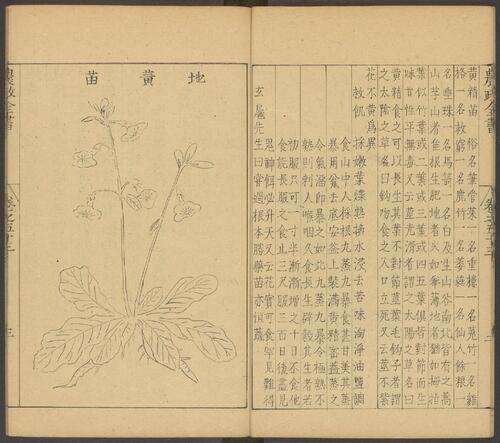 農政全書
卷之五十三
黃精苗 俗名筆管菜一名重樓一名菟竹一名雞
格一名救窮一名鹿竹一名萎蕤一名仙人餘糧一
名垂珠一名馬箭一名白及生山谷南北皆有之嵩
山茅山者佳根生肥地者大如拳薄地者猶如拇指
葉似竹葉或二葉或三葉或四五葉俱皆對節而生
味甘性平無毒又云莖光滑者謂之太陽之草名曰
黃精食之可以長生其葉不對節莖葉毛鉤子者謂
之太陰之草名曰鉤吻食之入口立死又云莖不紫
花不黃為異
救飢 採嫩葉煠熟換水浸去苦味淘淨油鹽調
食山中人採根九蒸九暴食甚甘美其蒸
暴用甕去底安釜上裝滿黃精密蓋蒸之
令氣溜即暴之如此九蒸九暴令極熟不
熟則刺人喉咽久食長生辟穀其生者若
初服只可一寸半漸漸增之十日不食他
食能長服之食止三尺服三百日後盡見
鬼神餌必升天又云花實可食罕見難得
玄扈先生曰嘗過根本勝藥苗亦恒蔬
地黃苗
農政全書
卷之五十三
三